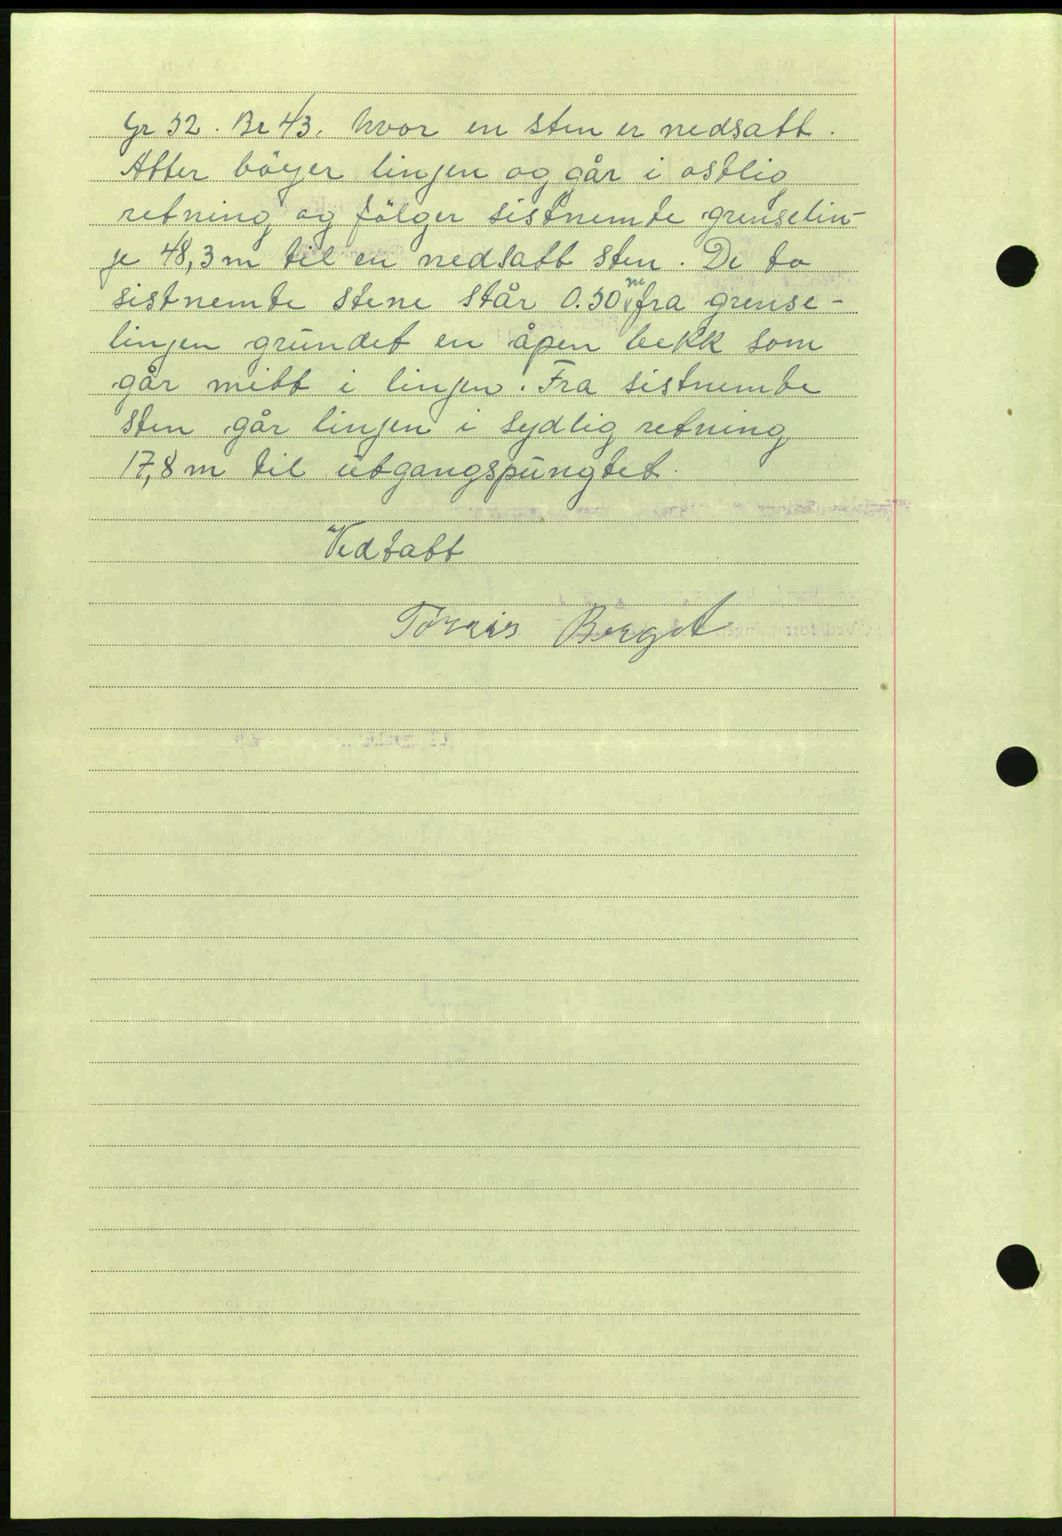 Gr 52. Br 43. hvor en sten er nedsatt.
Atter böyer linjen og går i ostlig
retning og fölger sistnemte grenselin-
je 48,3 m til en nedsatt sten. De to
sistnemte stene står 0.50 m fra grense-
linjen grundet en åpen bekk som
går mitt i linjen. Fra sistnemte
sten går linjen i sydlig retning
17,8 m til utgangspungtet.
Vedtatt